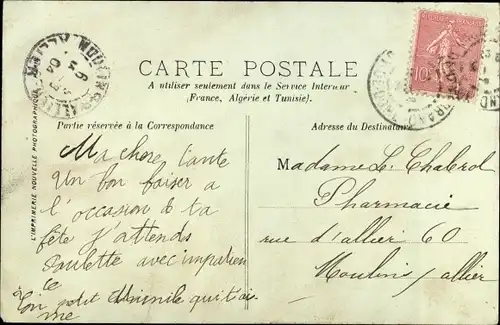 CARTE POSTALE
A utiliser seulement dans le Service Intérieur
(France, Algérie et Tunisie).
Partie réservée à la Correspondance
Adresse du Destinataire
L'IMPRIMERIE NOUVELLE PHOTOGRAPHIQUE
MOULINS-S-ALLIER ALLIER
6
04
10
Ma chere tante
Un bon baiser a
l'occasion de ta
fête j'attends
Paulette avec impatien
te
Ton petit qui t'aime
Madame Le Chaberol
Pharmacie
rue d'allier 60
Moulins / allier